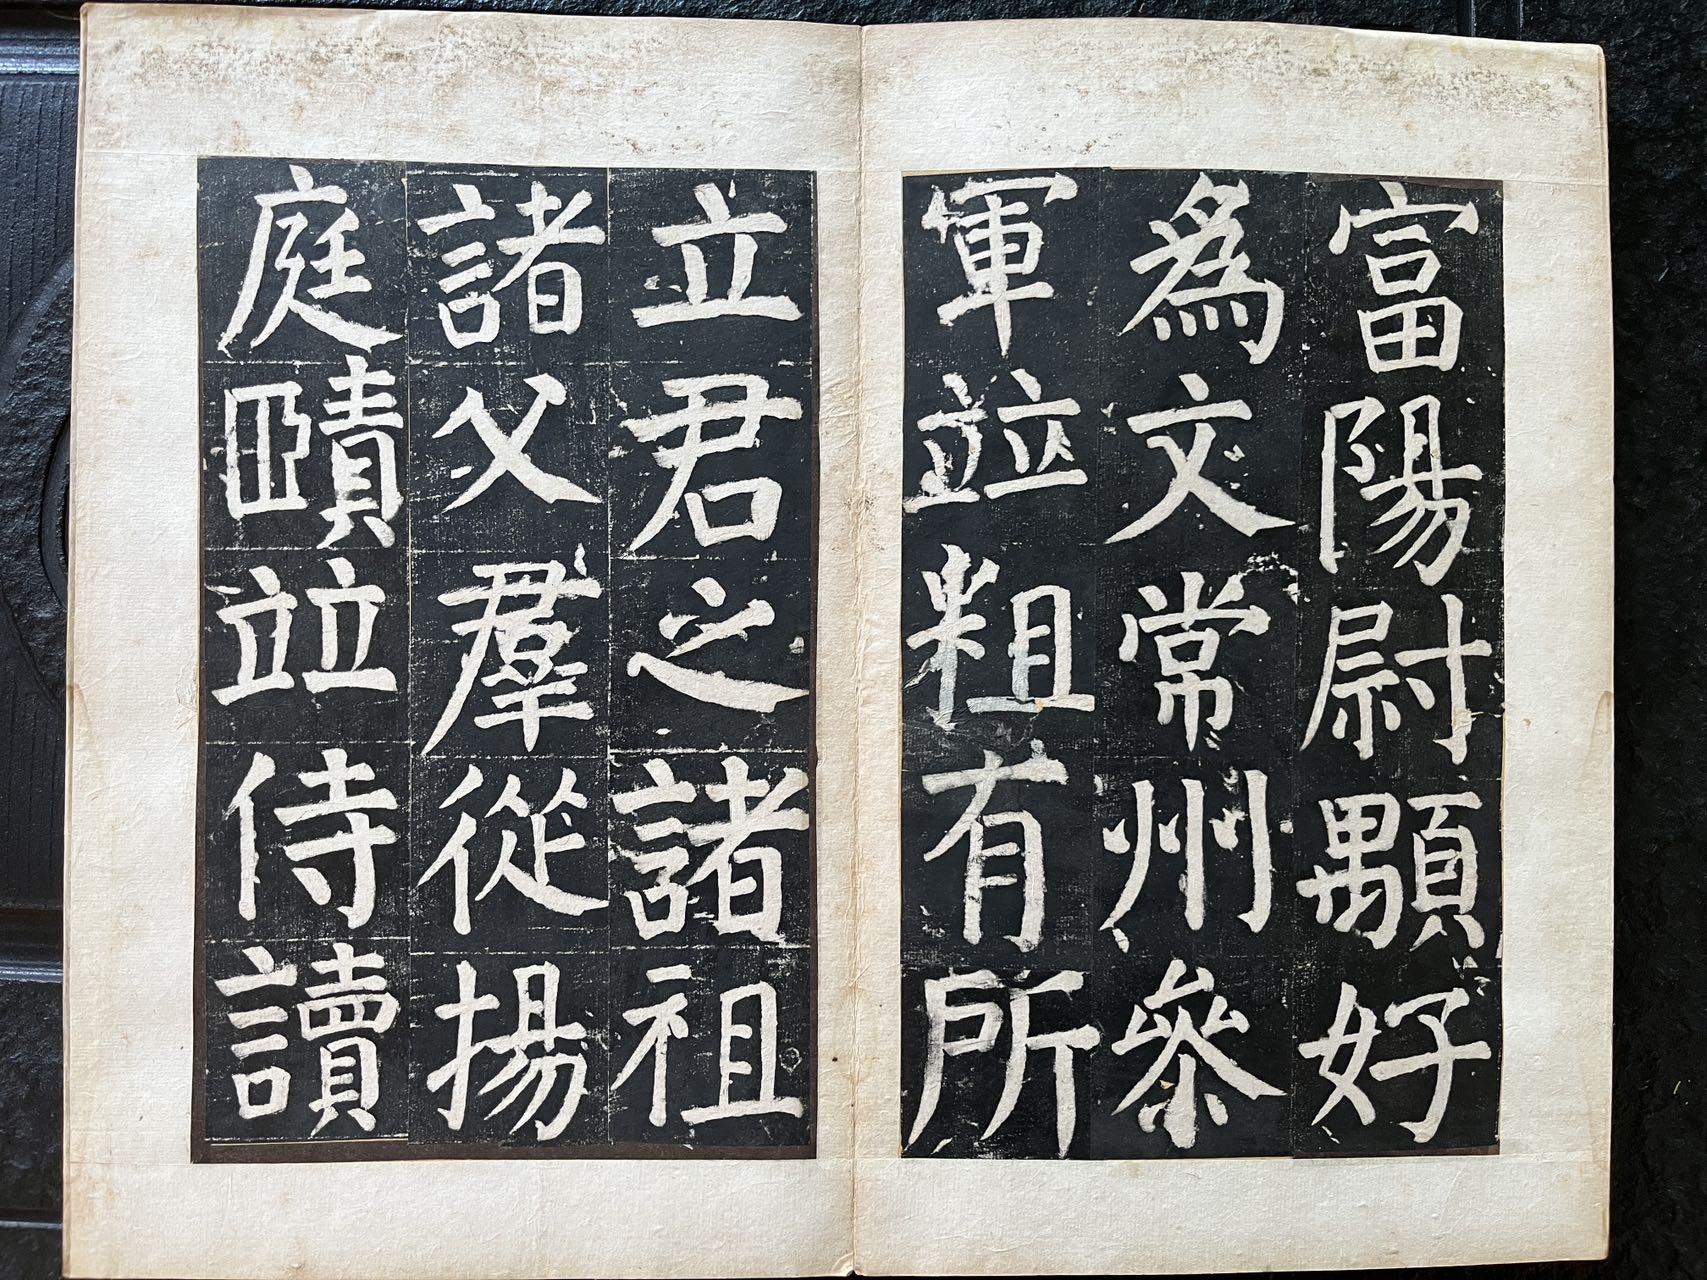 富陽尉顒好
爲文常州參
軍竝粗有所
立君之諸祖
諸父羣從揚
庭賾竝侍讀